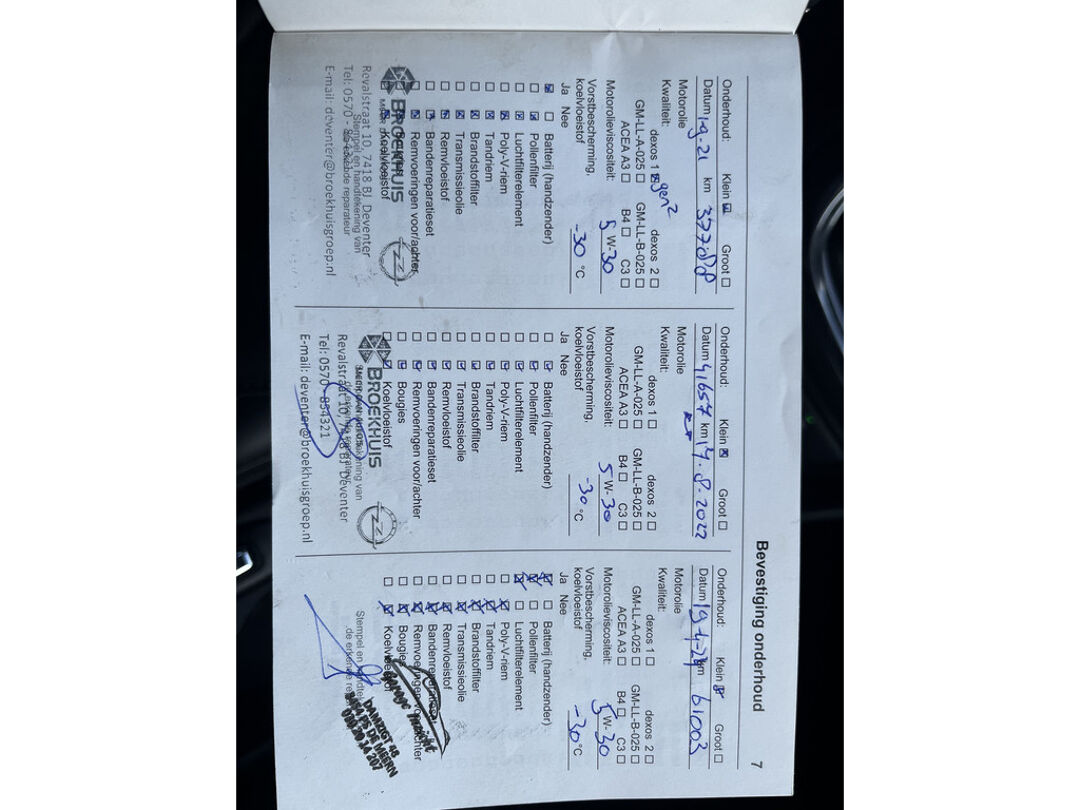 Bevestiging onderhoud
7
Onderhoud: Klein ☒ Groot ☐
Datum 19.21 km 37788
Motorolie
Kwaliteit: dexos 1 ☒ gen2 dexos 2 ☐
GM-LL-A-025 ☐ GM-LL-B-025 ☐
ACEA A3 ☐ B4 ☐ C3 ☐
Motorolieviscositeit: 5 W-30
Vorstbescherming,
koelvloeistof -30 °C
Ja Nee
☒ ☐ Batterij (handzender)
☐ ☒ Pollenfilter
☐ ☒ Luchtfilterelement
☐ ☒ Poly-V-riem
☐ ☒ Tandriem
☐ ☒ Brandstoffilter
☐ ☒ Transmissieolie
☐ ☒ Remvloeistof
☐ ☒ Bandenreparatieset
☐ ☒ Remvoeringen voor/achter
☐ ☒ Koelvloeistof
BROEKHUIS
Stempel en handtekening van
de erkende reparateur
Revalstraat 10, 7418 BJ Deventer
Tel: 0570 - 854321
E-mail: deventer@broekhuisgroep.nl
Onderhoud: Klein ☒ Groot ☐
Datum 41657 km 17.8.2022
Motorolie
Kwaliteit: dexos 1 ☐ dexos 2 ☐
GM-LL-A-025 ☐ GM-LL-B-025 ☐
ACEA A3 ☐ B4 ☐ C3 ☐
Motorolieviscositeit: 5 W-30
Vorstbescherming,
koelvloeistof -30 °C
Ja Nee
☐ ☑ Batterij (handzender)
☐ ☑ Pollenfilter
☐ ☑ Luchtfilterelement
☐ ☑ Poly-V-riem
☐ ☑ Tandriem
☐ ☑ Brandstoffilter
☐ ☑ Transmissieolie
☐ ☑ Remvloeistof
☐ ☑ Bandenreparatieset
☐ ☑ Remvoeringen voor/achter
☐ ☑ Bougies
☐ ☑ Koelvloeistof
BROEKHUIS
MEER DAN AUTO'S
Revalstraat 10, 7418 BJ Deventer
Tel: 0570-854321
E-mail: deventer@broekhuisgroep.nl
Onderhoud: Klein ☒ Groot ☐
Datum 19-4-24 km 61003
Motorolie
Kwaliteit: dexos 1 ☐ dexos 2 ☐
GM-LL-A-025 ☐ GM-LL-B-025 ☐
ACEA A3 ☐ B4 ☐ C3 ☐
Motorolieviscositeit: 5 W-30
Vorstbescherming,
koelvloeistof -30 °C
Ja Nee
☒ ☐ Batterij (handzender)
☒ ☐ Pollenfilter
☒ ☐ Luchtfilterelement
☐ ☒ Poly-V-riem
☐ ☒ Tandriem
☐ ☒ Brandstoffilter
☐ ☒ Transmissieolie
☐ ☒ Remvloeistof
☐ ☒ Bandenreparatieset
☐ ☒ Remvoeringen voor/achter
☐ ☒ Bougies
☐ ☒ Koelvloeistof
Stempel en
de erkende
Garage
DANZIGT 48
3454 PS DE MEERN